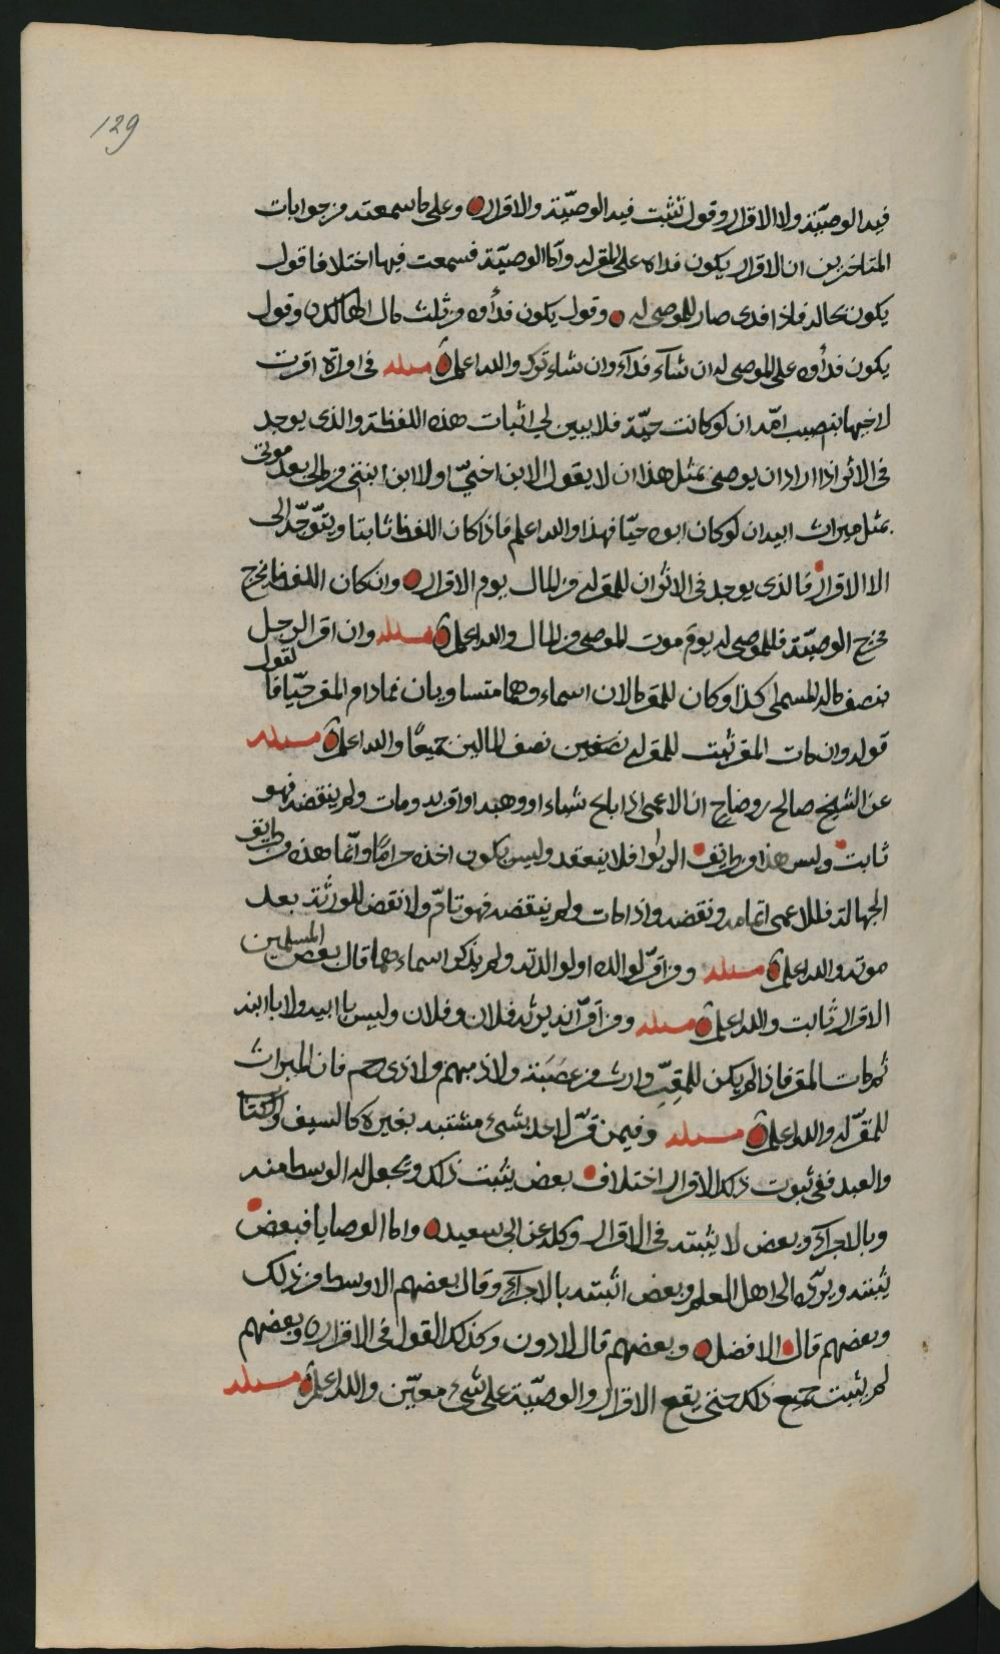 129
فيه الوصيّة ولا الاقرار وقول تثبت فيه الوصيّة والاقرار وعلى ما سمعته من جوابات
المتاخرين ان الاقرار يكون فداه على المقر له وأما الوصيّة فسمعت فيها اختلافا قول
يكون بحاله فاذا فدى صار للموصى له وقول يكون فدأوه من ثلث مال الهالك وقول
يكون فدأوه على الموصى له ان شاء فداء وان شاء ترك والله اعلم مسئله في امرأة اقرت
لاخيها بنصيب امّه ان لو كانت حيّة فلا يبين لي اثبات هذه اللفظة والذى يوجد
في الاثر اذا اراد ان يوصي بمثل هذا ان لا يقول لابن اخيّ او لابن ابنتي من مالي بعد موتى
بمثل ميراث ابيه ان لو كان ابوه حيّا فهذا والله اعلم فاذا كان اللفظ ثابتا ويتوجّه الى
الا الاقرار فالذى يوجد في الاثر ان للمقر له من المال يوم الاقرار وان كان اللفظ يخرج
مخرج الوصيّة فللموصى له يوم موت الموصي من المال والله اعلم مسئله وان اقر الرجل
بنصف ماله المسمى كذا وكان للمقر مالان اسماءوهما متساويان فمادام المقر حيّا فالقول
قوله وان مات المقر ثبت للمقر له نصفين نصف المالين جميعًا والله اعلم مسئله
عن الشيخ صالح بن وضاح ان الاعمى اذا باع شياء او وهبه او اقر به ومات ولم ينقضه فهو
ثابت وليس هذا من طريق الربوا فلا ينعقد وليس يكون اخذه حرامًا وانّما هذه من طريق
الجهالة فللاعمى اتمامه ونقضه واذا مات ولم ينقضه فهو تامّ ولا نقض للورثة بعد
موته والله اعلم مسئله ومن اقرّ لوالده او لوالدته ولم يذكر اسماءهما قال بعض المسلمين
الاقرار ثابت والله اعلم مسئله ومن اقرّ انه يرثه فلان وفلان وليس بابيه ولا بابنه
ثم مات المقر فاذا لم يكن للمقر وارث من عصبة ولا ذ سهم ولا ذى رحم فان الميراث
للمقرّ له والله اعلم مسئله وفيمن قرّ لاحد بشيء مشتبه بغيره كالسيف والكتاب
والعبد ففي ثبوت ذلك الاقرار اختلاف بعض يثبت ذلك ويجعل له الوسط منه
وبالاجزاء وبعض لا يثبته في الاقرار وكله عن ابى سعيده واما الوصايا فبعض
يثبته ويردّه الى اهل العلم وبعض اثبته بالاجزاء وقال بعضهم الاوسط من ذلك
وبعضهم قال الافضل وبعضهم قال الادون وكذلك القول في الاقرار وبعضهم
لم يثبت جميع ذلك حتى يقع الاقرار والوصيّة على شيء معيّن والله اعلم مسئله